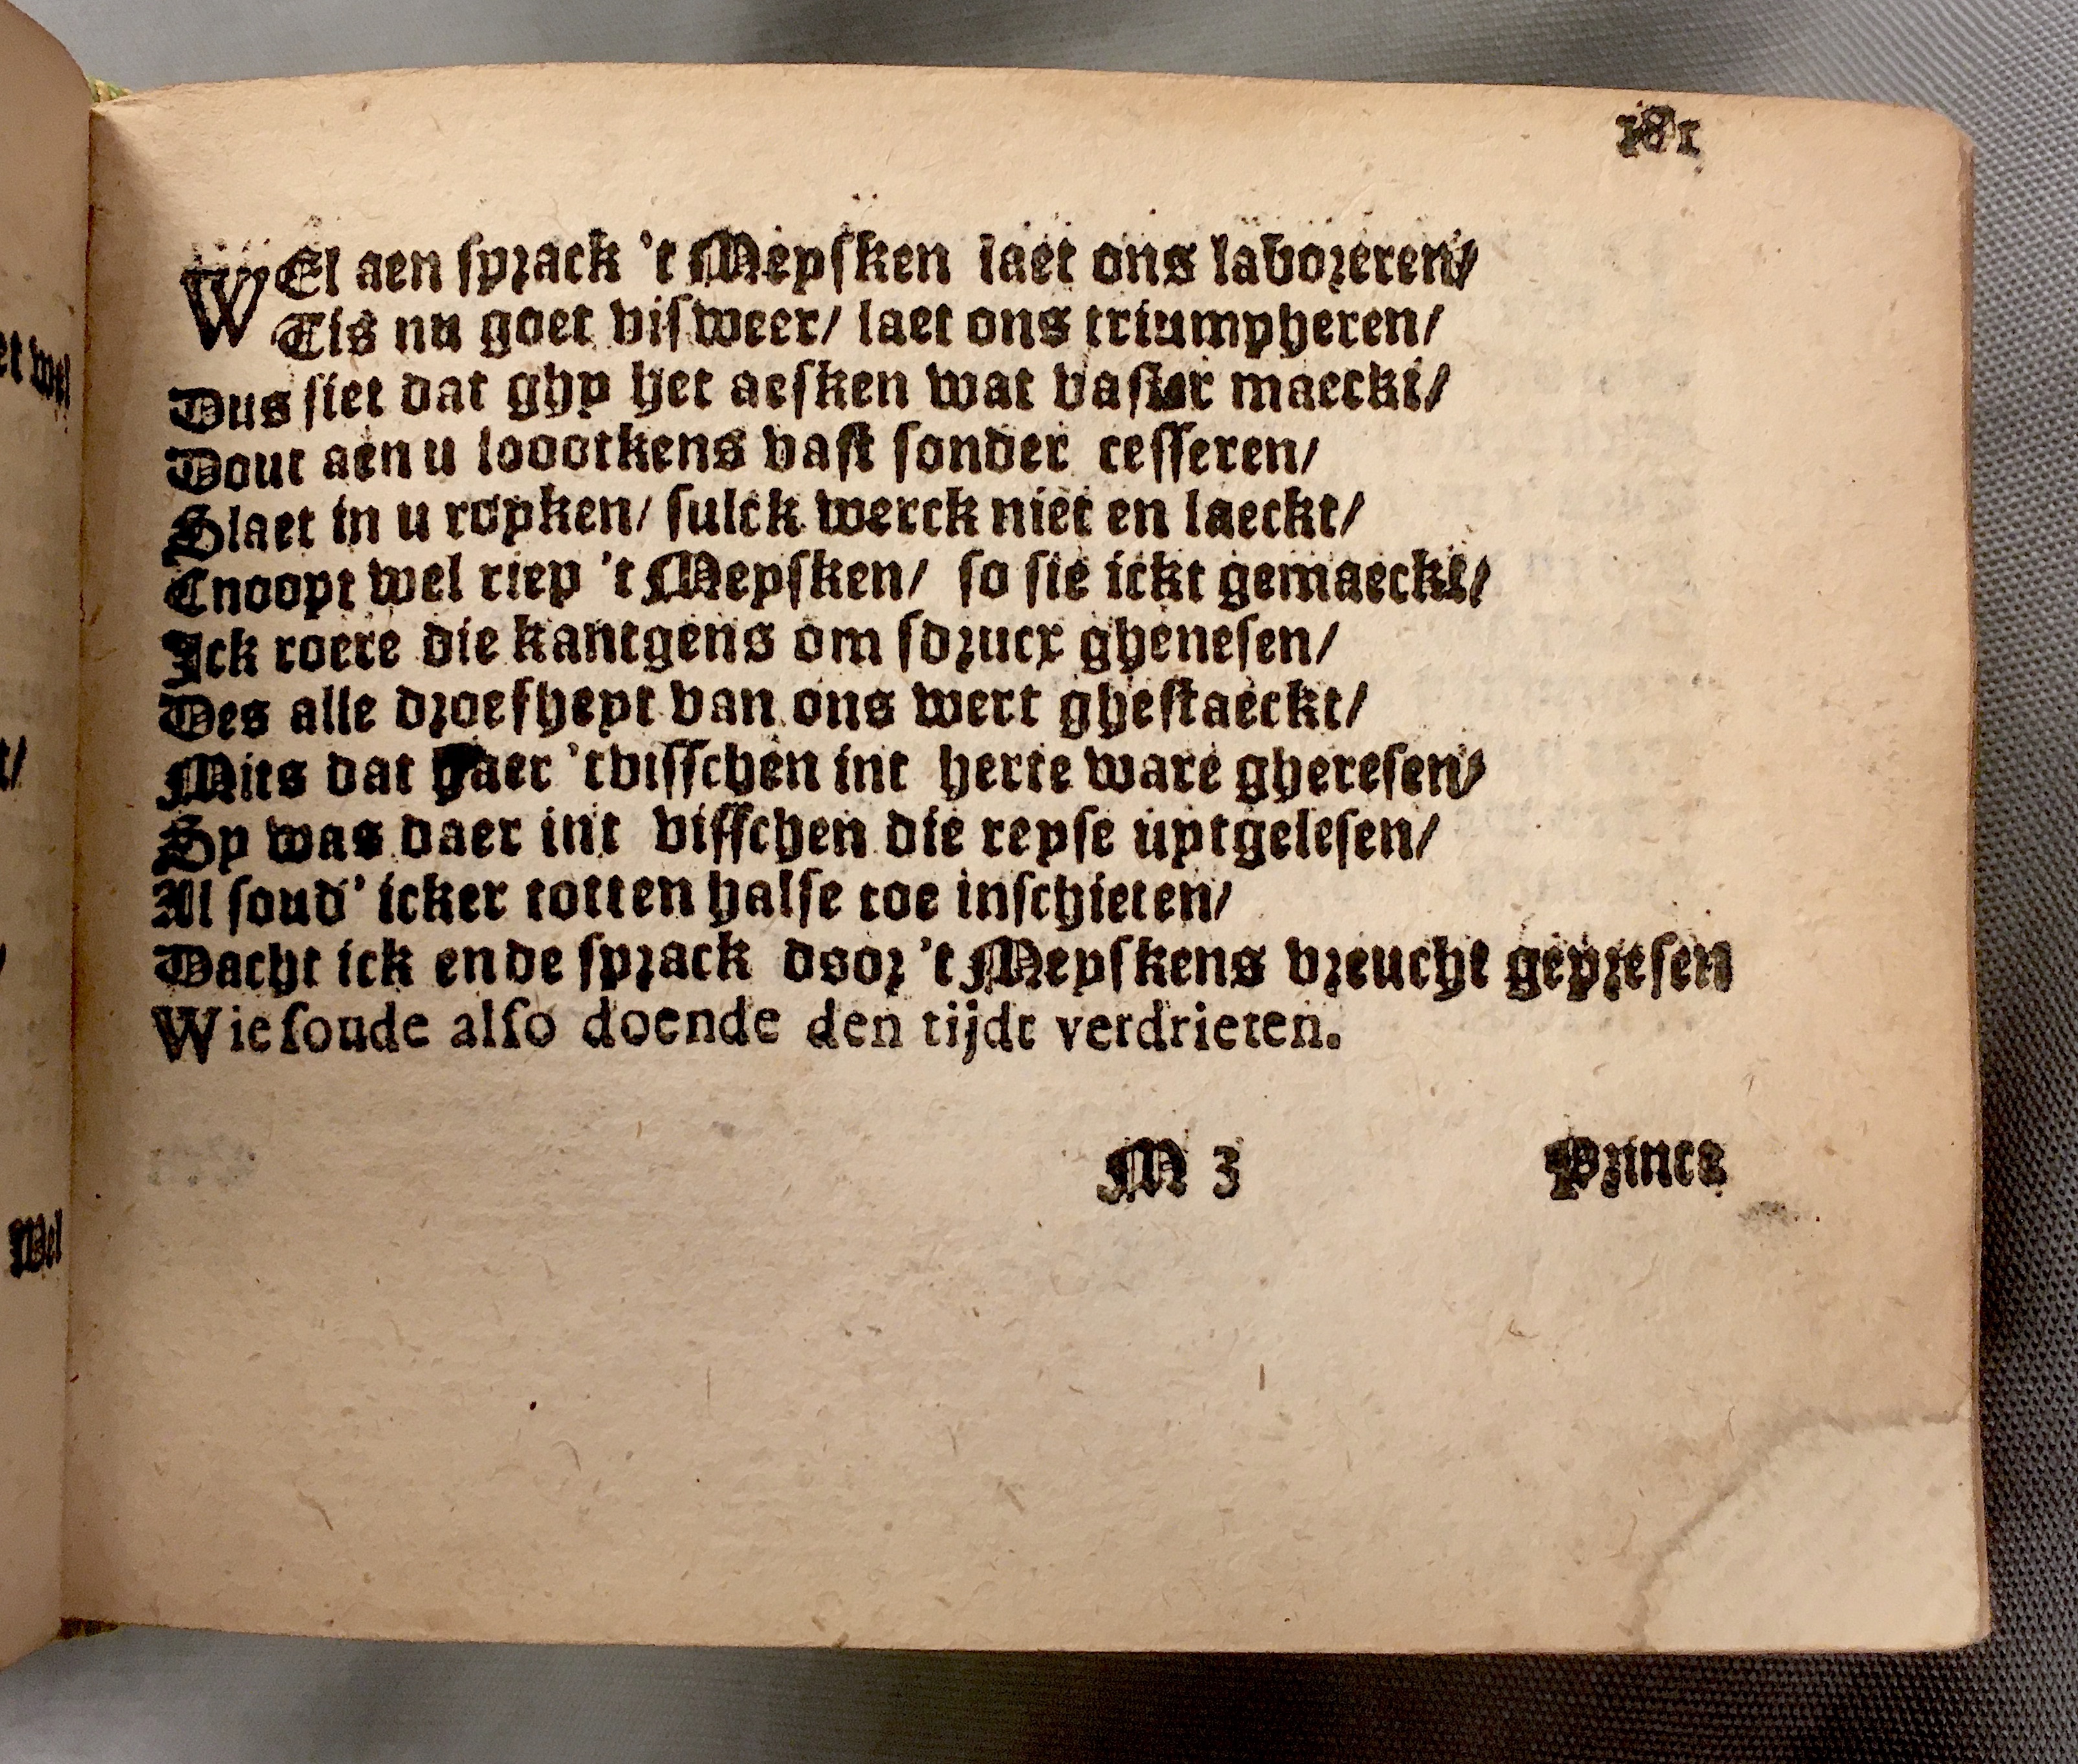 181
WEl aen sprack 't Meysken laet ons laboreren/
Tis nu goet visweer/ laet ons triumpheren/
Dus siet dat ghy het aesken wat vaster maeckt/
Dout aen u loootkens vast sonder cesseren/
Slaet in u royken/ sulck werck niet en laeckt/
Cnoopt wel riep 't Meysken/ so sie ickt gemaeckt/
Ick roere die kantgens om sdrucx ghenesen/
Des alle droefheyt van ons wert ghestaeckt/
Mits dat haer 'tvisschen int herte ware gheresen/
Sy was daer int visschen die reyse uytgelesen/
Al soud' icker totten halse toe inschieten/
Dacht ick ende sprack door 't Meyskens vreucht gepresen
Wie soude also doende den tijdt verdrieten.
M 3
Prince
et wel
t/
Wel